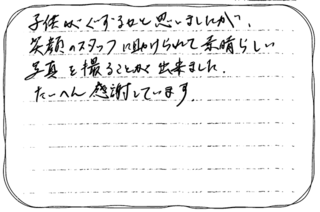 子供がぐずるかと思いましたが、
笑顔のスタッフに助けられて素晴らしい
写真を撮ることが出来ました。
たいへん感謝しています。